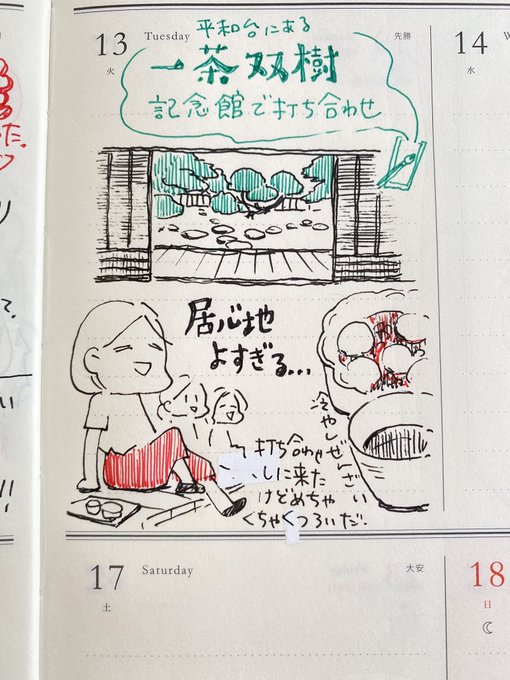 13 Tuesday 先勝
火
平和台にある
一茶双樹
記念館で打ち合わせ
14 W
水
た.
居心地
よすぎる...
冷やしぜんざい
打ち合わせ
しに来た
けどめちゃ
くちゃくつろいだ.
て.
い
!!
17 Saturday 大安
土
18
日